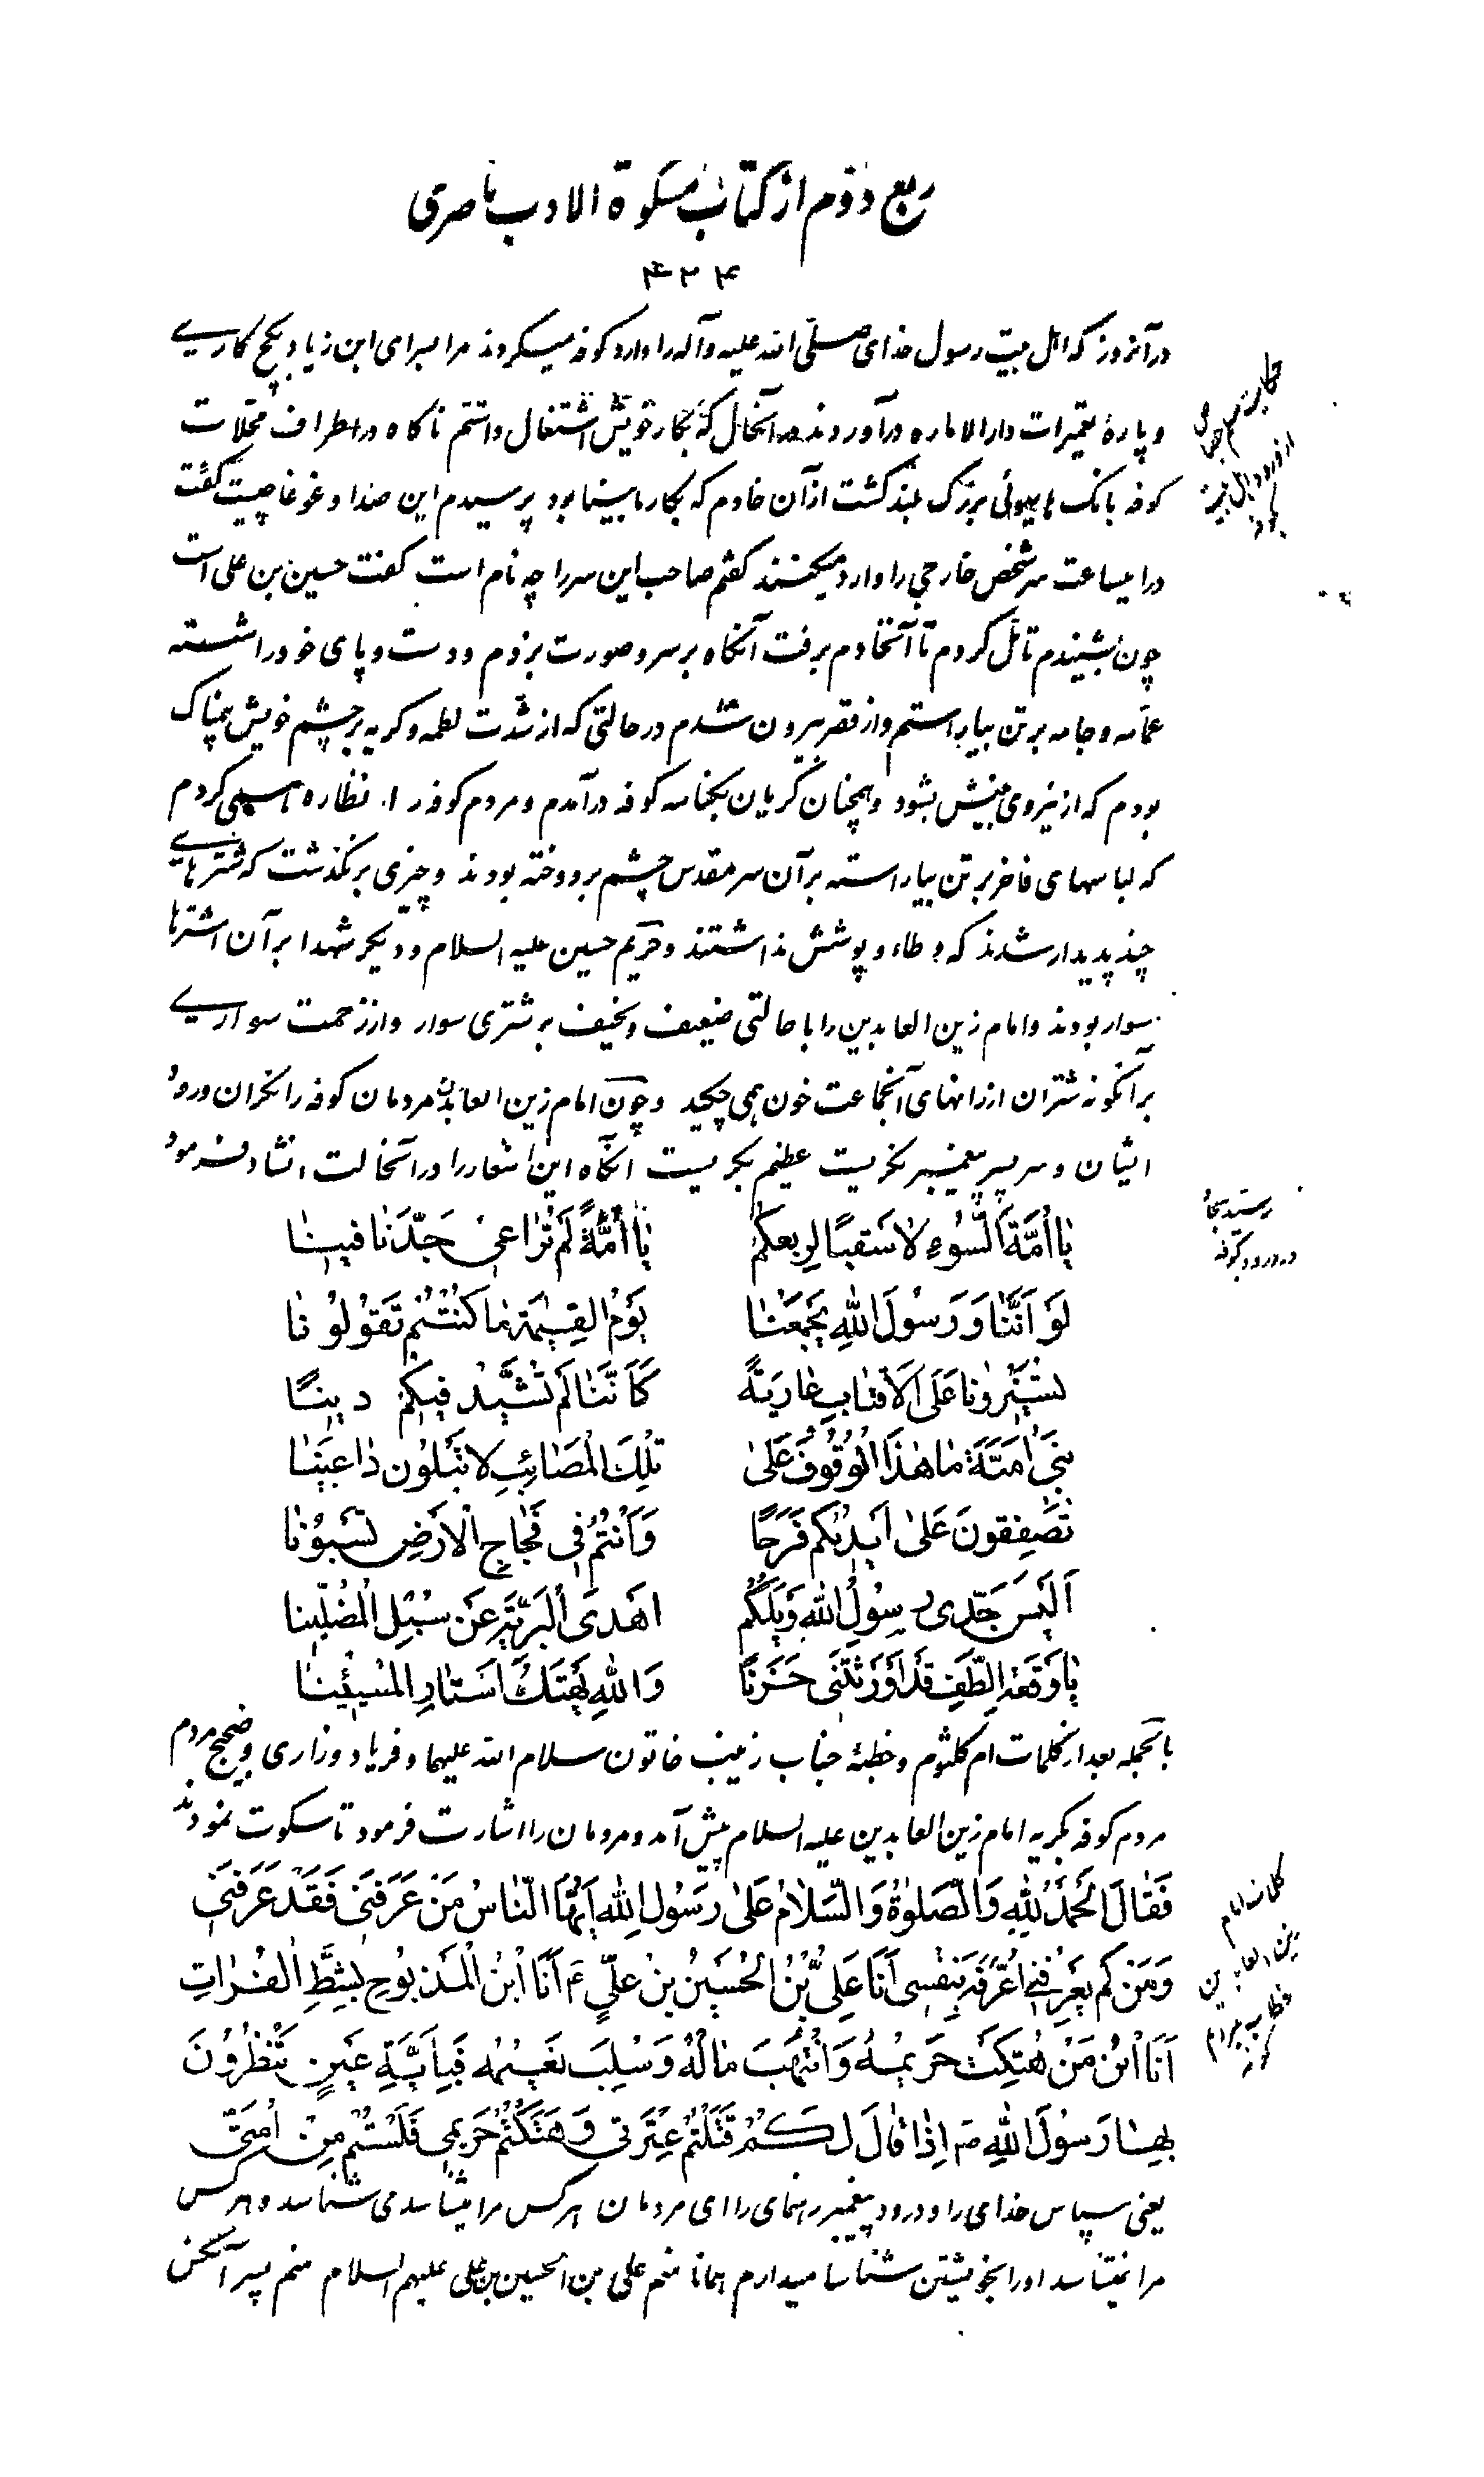 ربع دوم از کتاب مشکوة الادب ناصری
۴۲۴
در آنروز که اهل بیت رسول خدای صلّی الله علیه وآله را وارد کوفه میکردند مرا سرای ابن زیاد بگچ کاری
و پارهٔ تعمیرات دارالاماره درآوردند در آنحال که بکار خویش اشتغال داشتم ناگاه در اطراف محلّات
کوفه بانک هایهوئی بزرگ بلند گشت از آن خادم که بکار ما بینا بود پرسیدم این صدا و غوغا چیست گفت
در اینساعت سر شخص خارجی را وارد میکنند گفتم صاحب این سر را چه نام است گفت حسین بن علی است
چون بشنیدم تامّل کردم تا آنخادم برفت آنگاه بر سر و صورت بزدم و دست و پای خود را شسته
عمّامه و جامه بر تن بیاراستم و از قصر بیرون شدم در حالتی که از شدّت لطمه و گریه بر چشم خویش بیمناک
بودم که از نیروی بینش بشود و همچنان گریان بکناسه کوفه درآمدم و مردم کوفه را نظاره همی کردم
که لباسهای فاخر بر تن بیاراسته بر آن سر مقدس چشم بر دوخته بودند و چیزی بر نگذشت که شترهای
چند پدیدار شدند که وطاء و پوشش نداشتند و حریم حسین علیه السلام و دیگر شهدا بر آن اشترها
سوار بودند و امام زین العابدین را با حالتی ضعیف و نحیف بر شتری سوار و از زحمت سواری
بر آنگونه شتران از رانهای آنجماعت خون همی چکید و چون امام زین العابدین مردمان کوفه را نگران ورود
ایشان و سر پسر پیغمبر نگریست عظیم بگریست آنگاه این اشعار را در آنحالت انشاد فرمود
یٰا اُمَّةَ السُّوءِ لٰا سَقیًا لِرَبعِکُم یٰا اُمَّةً لَم تُرٰاعی جَدَّنٰا فینٰا
لَو اَنَّنٰا وَ رَسُولَ اللهِ یَجمَعُنٰا یَومَ القِیٰمَةِ مٰا کُنتُم تَقُولُونٰا
تُسَیِّرُونٰا عَلَی الاَقتٰابِ عٰارِیَةً کَاَنَّنٰا لَم نُشَیِّد فیکُم دینًا
بَنی اُمَیَّةَ مٰا هٰذَا الوُقُوفُ عَلیٰ تِلکَ المَصٰائِبِ لا تُبلُون دٰاعینٰا
تُصَفِّقُونَ عَلیٰ اَیدیکُم فَرَحًا وَ اَنتُم فی فِجٰاجِ الاَرضِ تُسبُونٰا
اَلَیسَ جَدّی رَسُولُ اللهِ وَیلَکُم اَهدَی البَرِیَّةِ عَن سُبُلِ المُضِلّینا
یٰا وَقعَةَ الطَّفِّ قَد اَورَثتَنی حَزَنًا وَاللهِ یَهتَکُ اَستٰارَ المُسیئینٰا
بالجمله بعد از کلمات ام کلثوم و خطبهٔ جناب زینب خاتون سلام الله علیهما و فریاد و زاری و ضجیج مردم
مردم کوفه بگریه امام زین العابدین علیه السلام پیش آمد و مردمان را اشارت فرمود تا سکوت نمودند
فَقٰالَ اَلحَمدُ لِلّٰهِ وَالصَّلوٰةُ وَالسَّلٰامُ عَلیٰ رَسُولِ اللهِ اَیُّهَا النّاسُ مَن عَرَفَنی فَقَد عَرَفَنی
وَمَن لَم یَعرِفنی اُعَرِّفهُ بِنَفسی اَنَا عَلِیُّ بنُ الحُسَینِ بنِ عَلِیٍّ ع اَنَا ابنُ المَذبُوحِ بِشَطِّ الفُرٰاتِ
اَنَا ابنُ مَن هُتِکَت حَریمُهُ وَانتُهِبَ مٰالُهُ وَسُلِبَ نَعیمُهُ فَبِاَیَّةِ عَینٍ تَنظُرُونَ
بِهٰا رَسُولَ اللهِ ص اِذٰا قٰالَ لَکُم قَتَلتُم عِترَتی وَهَتَکتُم حَریمی فَلَستُم مِن اُمَّتی
یعنی سپاس خدای را و درود پیغمبر رهنمای را ای مردمان هر کس مرا میشناسد می شناسد و هر کس
مرا نمیشناسد او را بخویشتن شناسا میدارم همانا منم علی بن الحسین بن علی علیهم السلام منم پسر آنکس
حکایت مسلم جصاص
از ورود اهل بیت
بکوفه
در ورود بکوفه
کلمات امام
زین العابدین
خطاب بمردم
کوفه